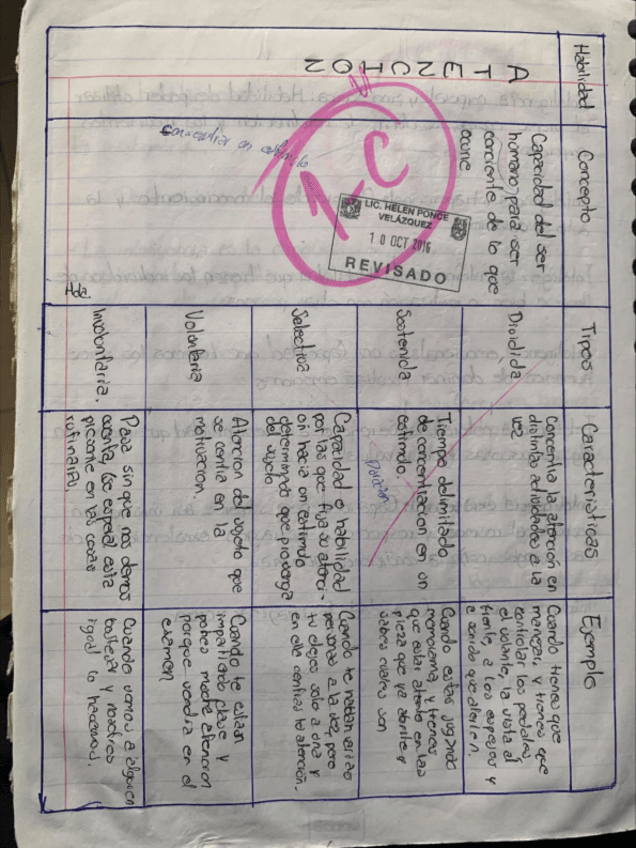 Habilidad
Concepto
Tipos
Características
Ejemplo
ATENCION
Capacidad del ser
humano para ser
conciente de lo que
ocurre
Concentrar en estimulo
1-C
LIC. HELEN PONCE
VELÁZQUEZ
10 OCT 2016
REVISADO
Dividida
Concentra la atención en
distintas actividades a la
vez
Cuando tienes que
manejar, y tienes que
controlar los pedales,
el volante, la vista al
frente, a los espejos y
a sonido que alerten.
Sostenida
Tiempo delimitado
de concentración en un
estimulo.
Duración
Cuando estas jugando
memorama, y tienes
que estar atento en las
pieza que ya abriste y
sabes cuales son
Selectiva
Capacidad o habilidad
por las que fija su atenci-
ón hacia un estimulo
determinando que provenga
del sujeto
Cuando te hablan varias
personas a la vez pero
tu elejes solo a una y
en ella centras tu atención.
Voluntaria
Atencion del sujeto que
se centra en la
motivacion.
Cuando te estan
impartiendo clase y
pones mucha atencion
porque vendra en el
examen
Involuntaria.
Pasa sin que nos demos
cuenta, se
en las cosas
rutinarias.
Cuando vemos a alguien
bostezar y nosotros
igual lo hacemos.